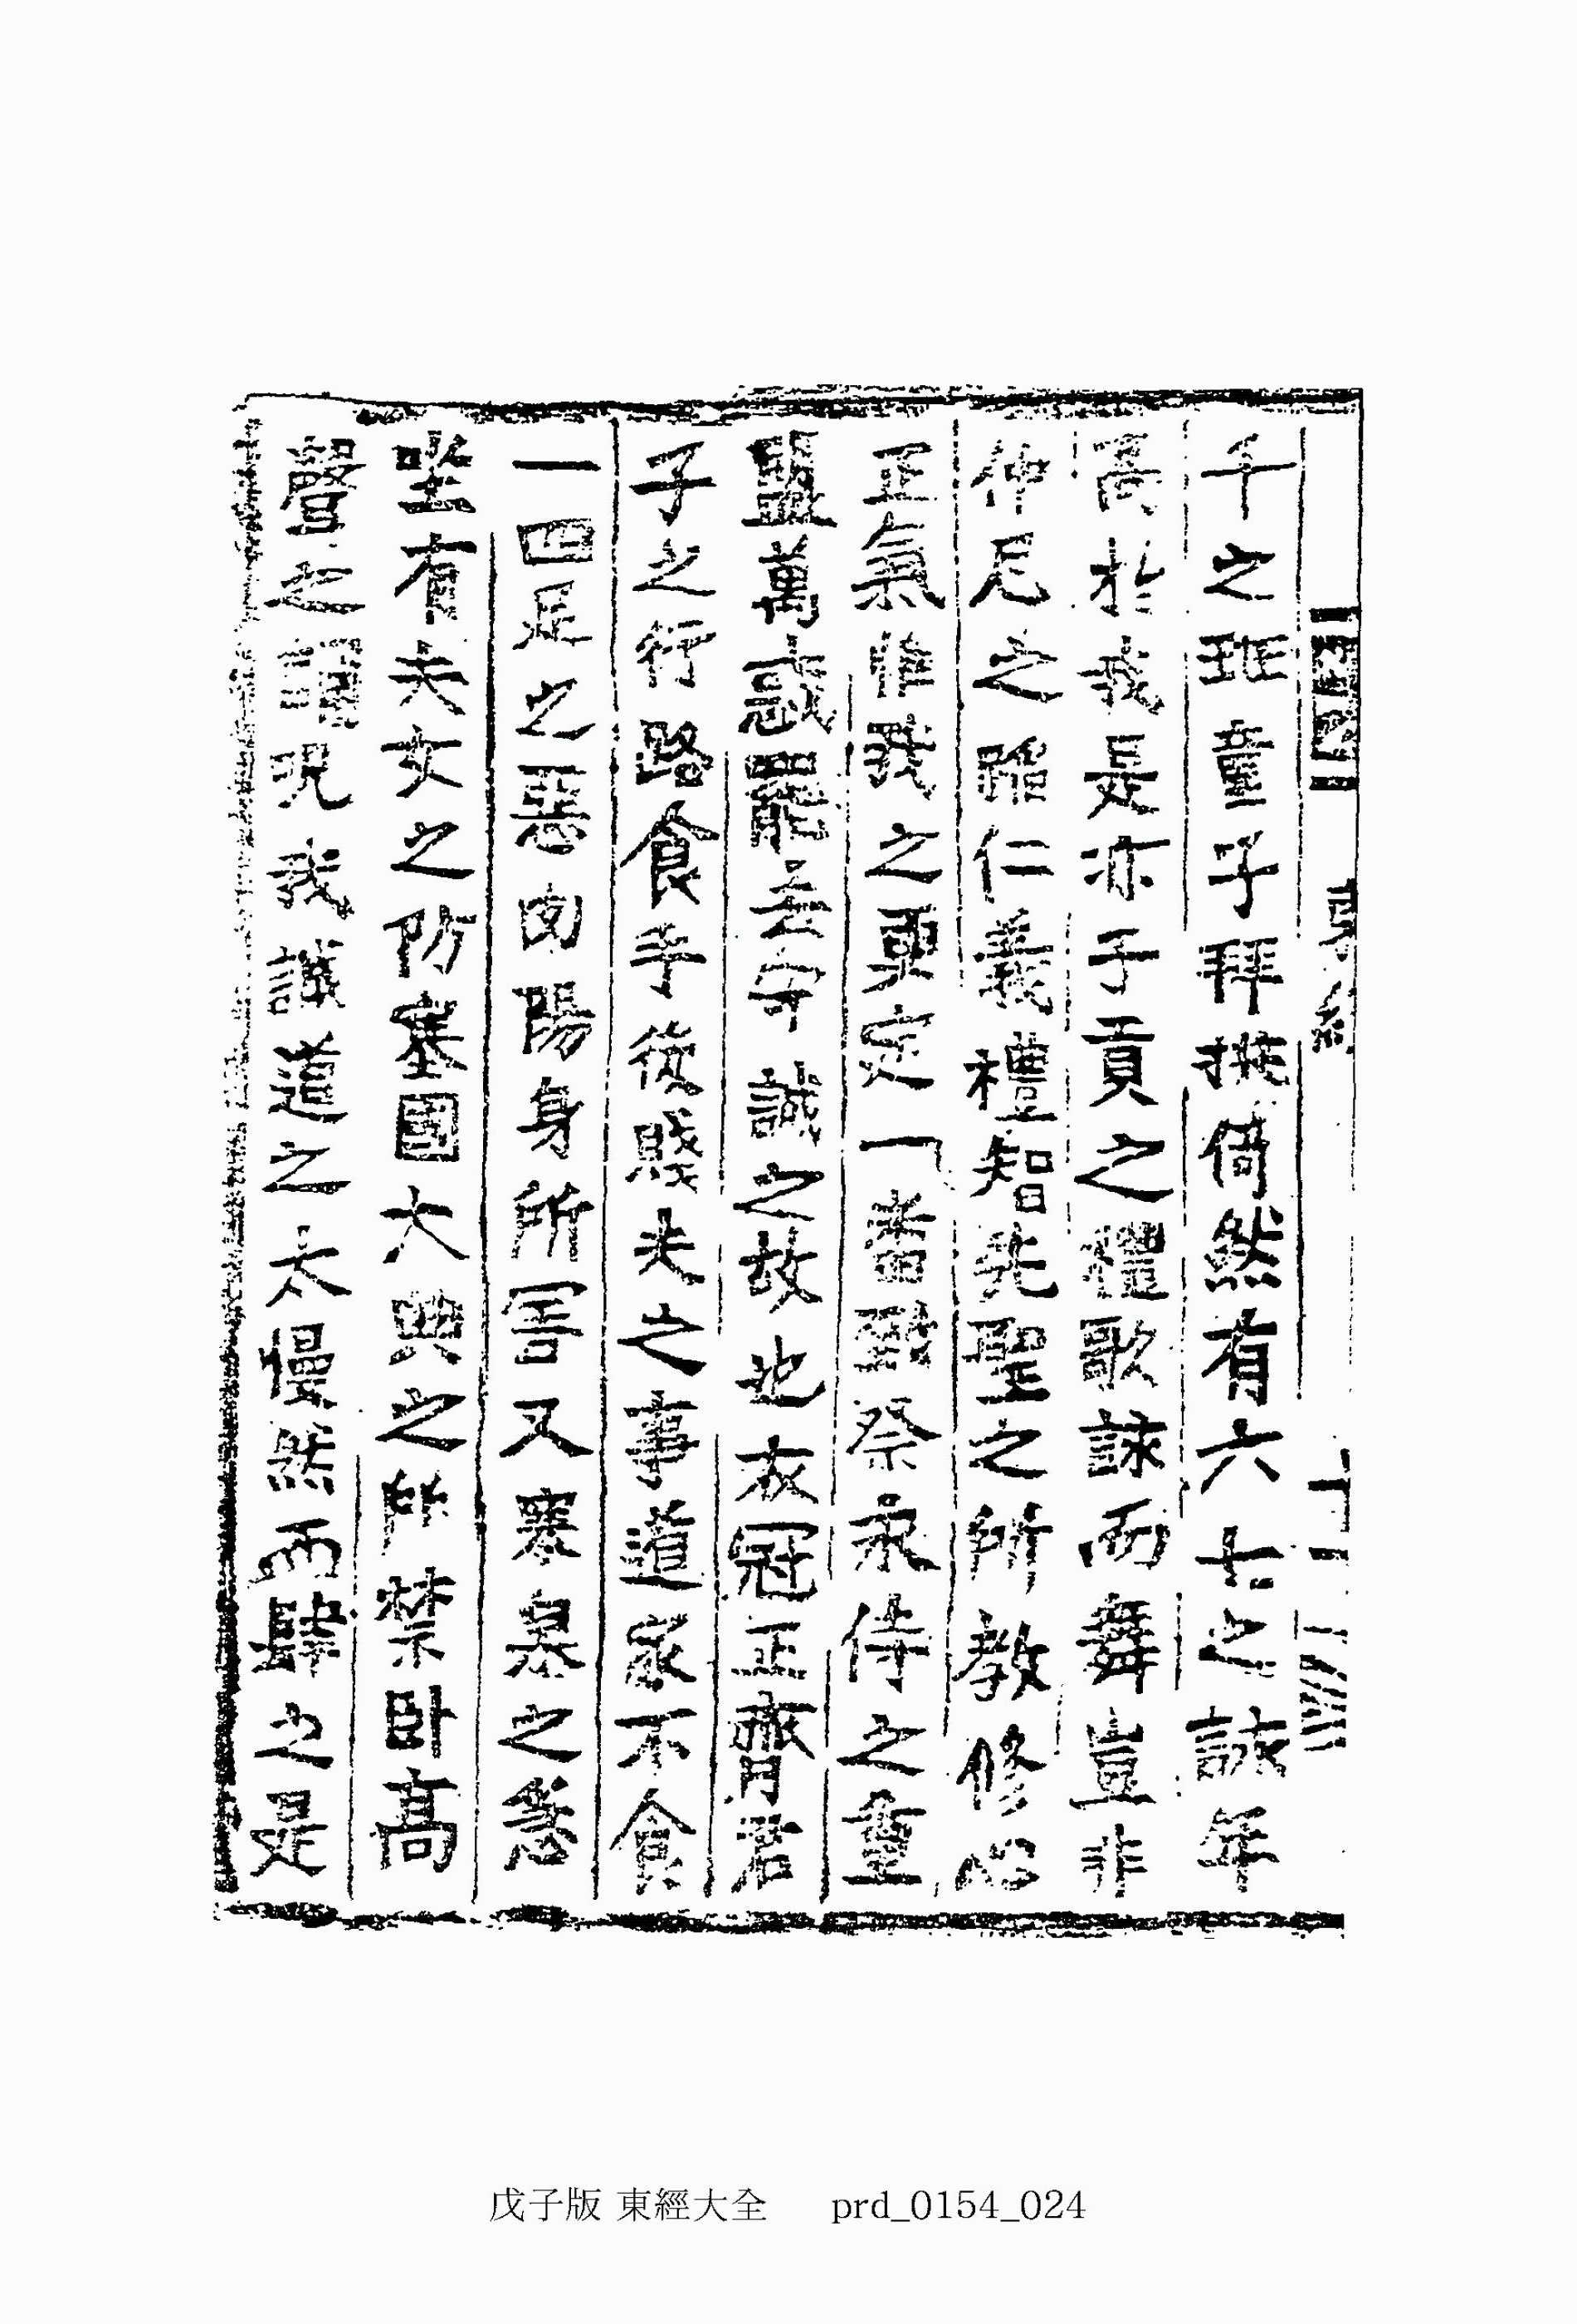 東經 十一
千之班童子拜拱倚然有六七之詠年
高於我是亦子貢之禮歌詠而舞豈非
仲尼之蹈仁義禮智先聖之所教修心
正氣惟我之更定一番致祭永侍之重
盟萬惑罷去守誠之故也衣冠正齊君
子之行路食手後賤夫之事道家不食
一四足之惡肉陽身所害又寒泉之急
坐有夫女之防塞國大典之所禁臥高
聲之誦呪我誠道之太慢然而肆之是
戊子版 東經大全 prd_0154_024